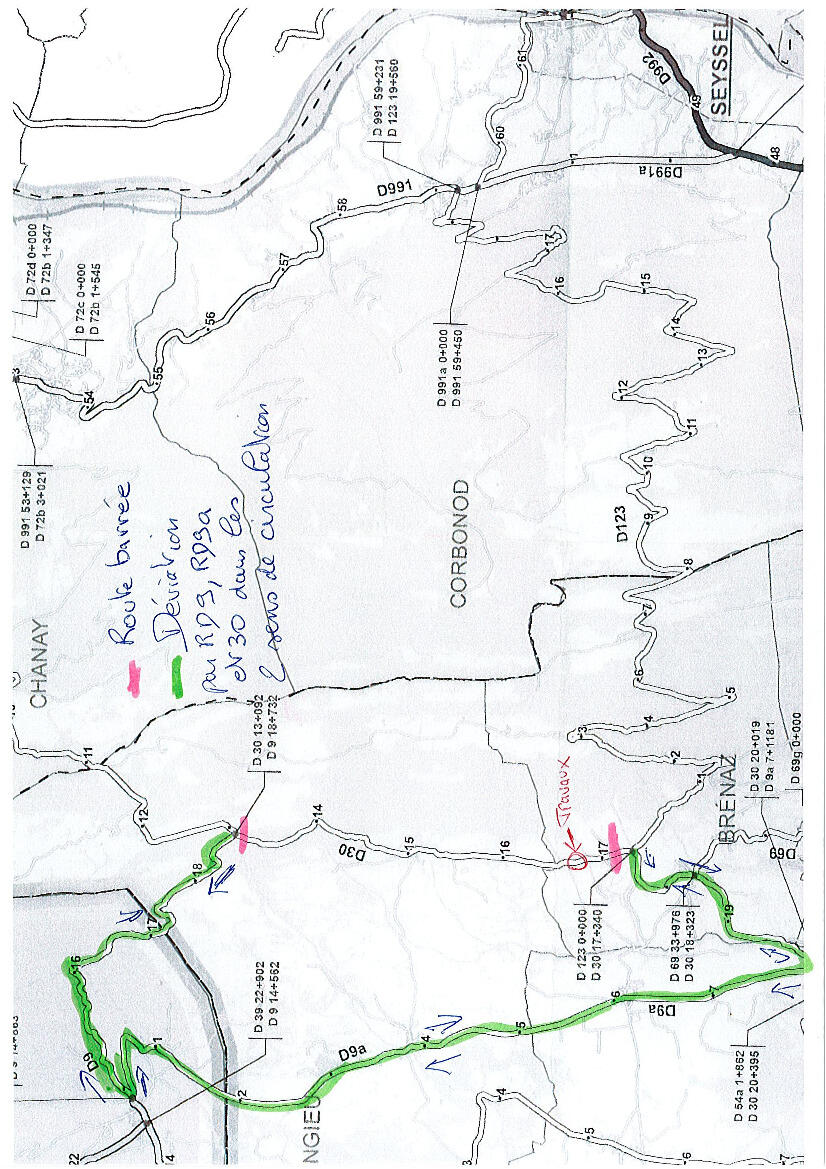 CHANAY
Route barrée
Déviation
par RD9, RD9a
et D30 dans les
2 sens de circulation
D 991 53+129
D 72b 3+021
D 72d 0+000
D 72b 1+347
D 72c 0+000
D 72b 1+545
54
55
56
57
58
D991
D 991 59+231
D 123 19+560
60
61
D992
49
48
SEYSSEL
1
D991a
D 991a 0+000
D 991 59+450
17
16
15
14
13
12
11
10
9
D123
8
7
6
5
4
3
2
1
CORBONOD
BRÉNAZ
11
12
D 30 13+092
D 9 18+732
14
D30
15
16
Travaux
17
D 123 0+000
D 30 17+340
D 69 33+976
D 30 18+323
D 30 20+019
D 9a 7+1181
D 69g 0+000
D69
19
18
17
16
D9
D 39 22+902
D 9 14+562
22
14
1
2
D9a
4
5
6
D9a
7
D 54a 1+862
D 30 20+395
NGIEU
3
4
5
6
7